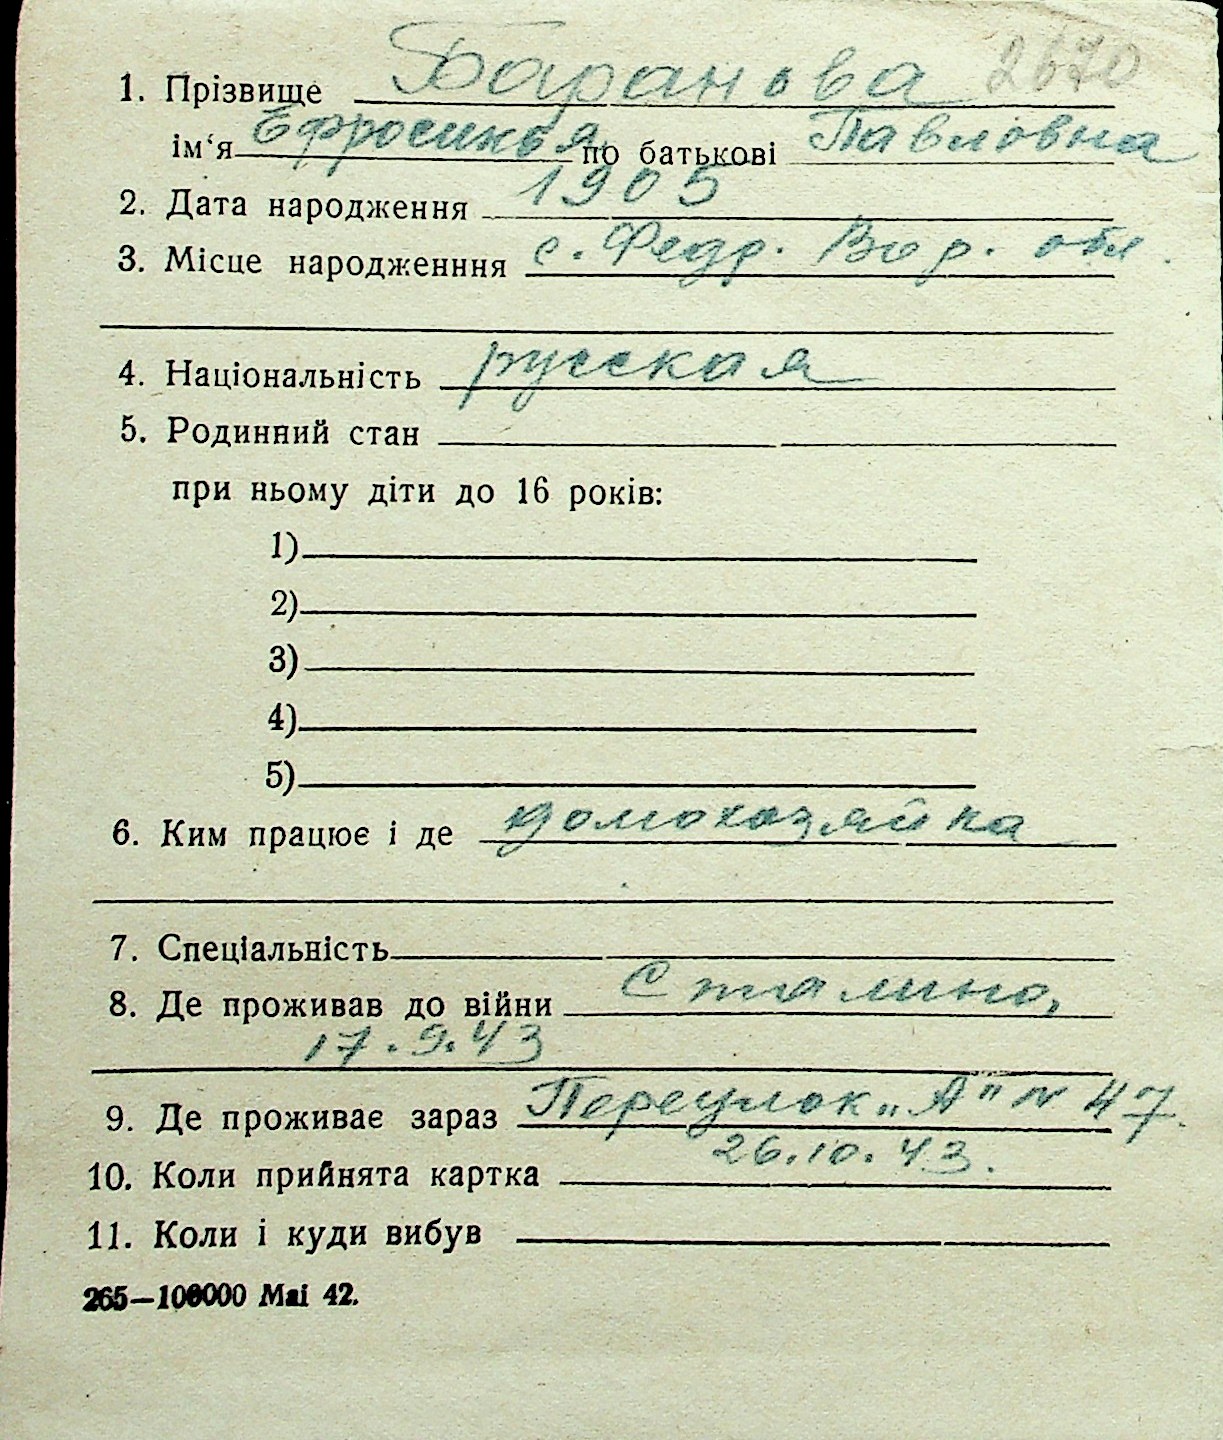 2670
1. Прізвище Баранова
ім‘я Ефросинья по батькові Павловна
2. Дата народження 1905
3. Місце народженння с. Федр. Вор. обл.
4. Національність русская
5. Родинний стан
при ньому діти до 16 років:
1)
2)
3)
4)
5)
6. Ким працює і де домохозяйка
7. Спеціальність
8. Де проживав до війни Сталино,
17.9.43
9. Де проживає зараз Переулок „А" № 47.
10. Коли прийнята картка 26.10.43.
11. Коли і куди вибув
265—100000 Маі 42.